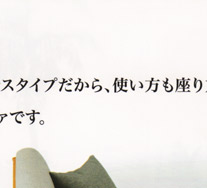 スタイプだから、使い方も座り
ァです。